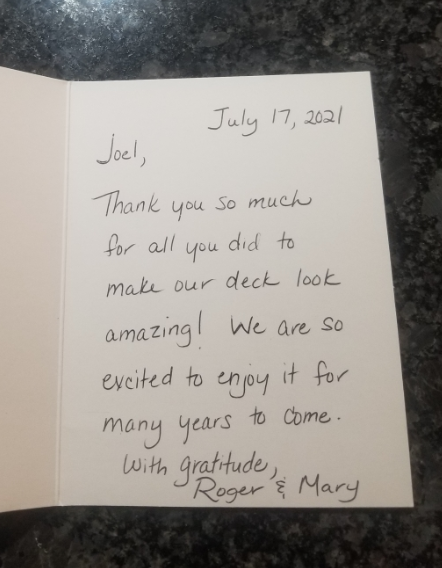 July 17, 2021
Joel,
Thank you so much
for all you did to
make our deck look
amazing! We are so
excited to enjoy it for
many years to come.
With gratitude,
Roger & Mary